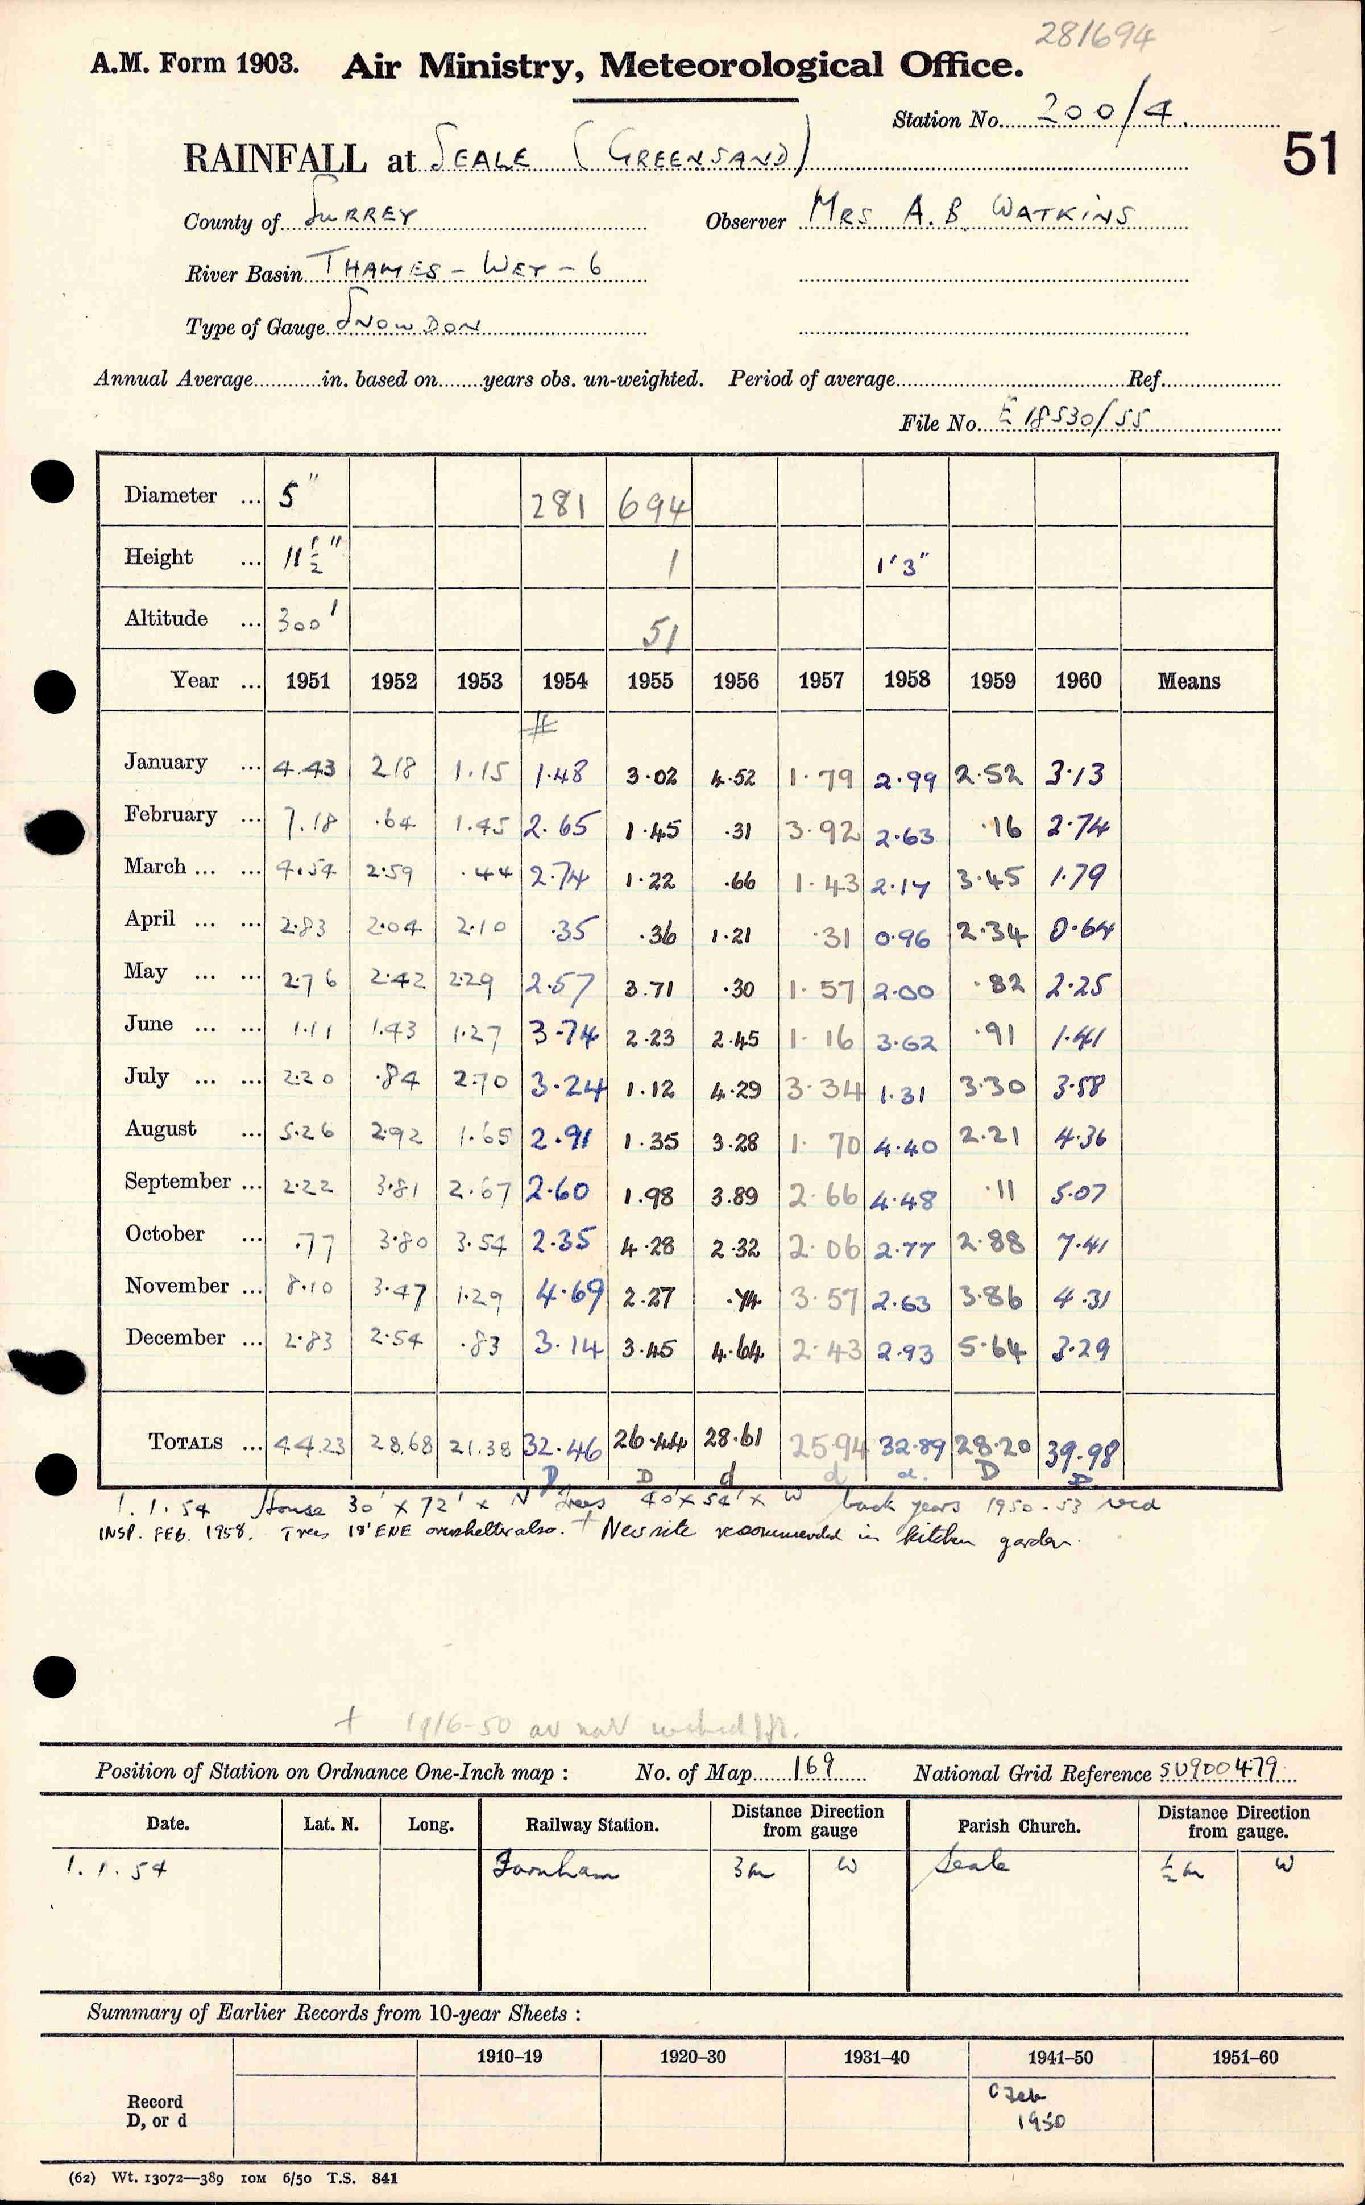 281694
A.M. Form 1903. Air Ministry, Meteorological Office.
Station No. 200/4.
51
RAINFALL at SEALE (GREENSAND)
County of SURREY Observer MRS A.B. WATKINS
River Basin THAMES - WEY - 6
Type of Gauge SNOWDON
Annual Average in. based on years obs. un-weighted. Period of average Ref.
File No. E 18530/55
Diameter ... 5" 281 694
Height ... 11½" 1 1'3"
Altitude ... 300' 51
Year ... 1951 1952 1953 1954 1955 1956 1957 1958 1959 1960 Means
#
January ... 4.43 2.18 1.15 1.48 3.02 4.52 1.79 2.99 2.52 3.13
February ... 7.18 .64 1.45 2.65 1.45 .31 3.92 2.63 .16 2.74
March ... ... 4.54 2.59 .44 2.74 1.22 .66 1.43 2.17 3.45 1.79
April ... ... 2.83 2.04 2.10 .35 .36 1.21 .31 0.96 2.34 0.64
May ... ... 2.76 2.42 2.29 2.57 3.71 .30 1.57 2.00 .82 2.25
June ... ... 1.11 1.43 1.27 3.74 2.23 2.45 1.16 3.62 .91 1.41
July ... ... 2.20 .84 2.70 3.24 1.12 4.29 3.34 1.31 3.30 3.58
August ... 5.26 2.92 1.65 2.91 1.35 3.28 1.70 4.40 2.21 4.36
September ... 2.22 3.81 2.67 2.60 1.98 3.89 2.66 4.48 .11 5.07
October ... .77 3.80 3.54 2.35 4.28 2.32 2.06 2.77 2.88 7.41
November ... 8.10 3.47 1.29 4.69 2.27 .74 3.57 2.63 3.86 4.31
December ... 2.83 2.54 .83 3.14 3.45 4.64 2.43 2.93 5.64 3.29
TOTALS ... 44.23 28.68 21.38 32.46 26.44 28.61 25.94 32.89 28.20 39.98
D D d d d. D D
1.1.54 House 30' x 72' x N Trees 40' x 54' x W back years 1950-53 recd
INSP. FEB. 1958. Trees 18' ENE overshelter also. + New site recommended in kitchen garden.
+ 1916-50 av not worked
Position of Station on Ordnance One-Inch map : No. of Map 169 National Grid Reference SU900479
Date. Lat. N. Long. Railway Station. Distance Direction from gauge Parish Church. Distance Direction from gauge.
1.1.54 Farnham 3m W Seale ½m W
Summary of Earlier Records from 10-year Sheets :
1910–19 1920–30 1931–40 1941–50 1951–60
Record D, or d
C Feb
1950
(62) Wt. 13072—389 10M 6/50 T.S. 841